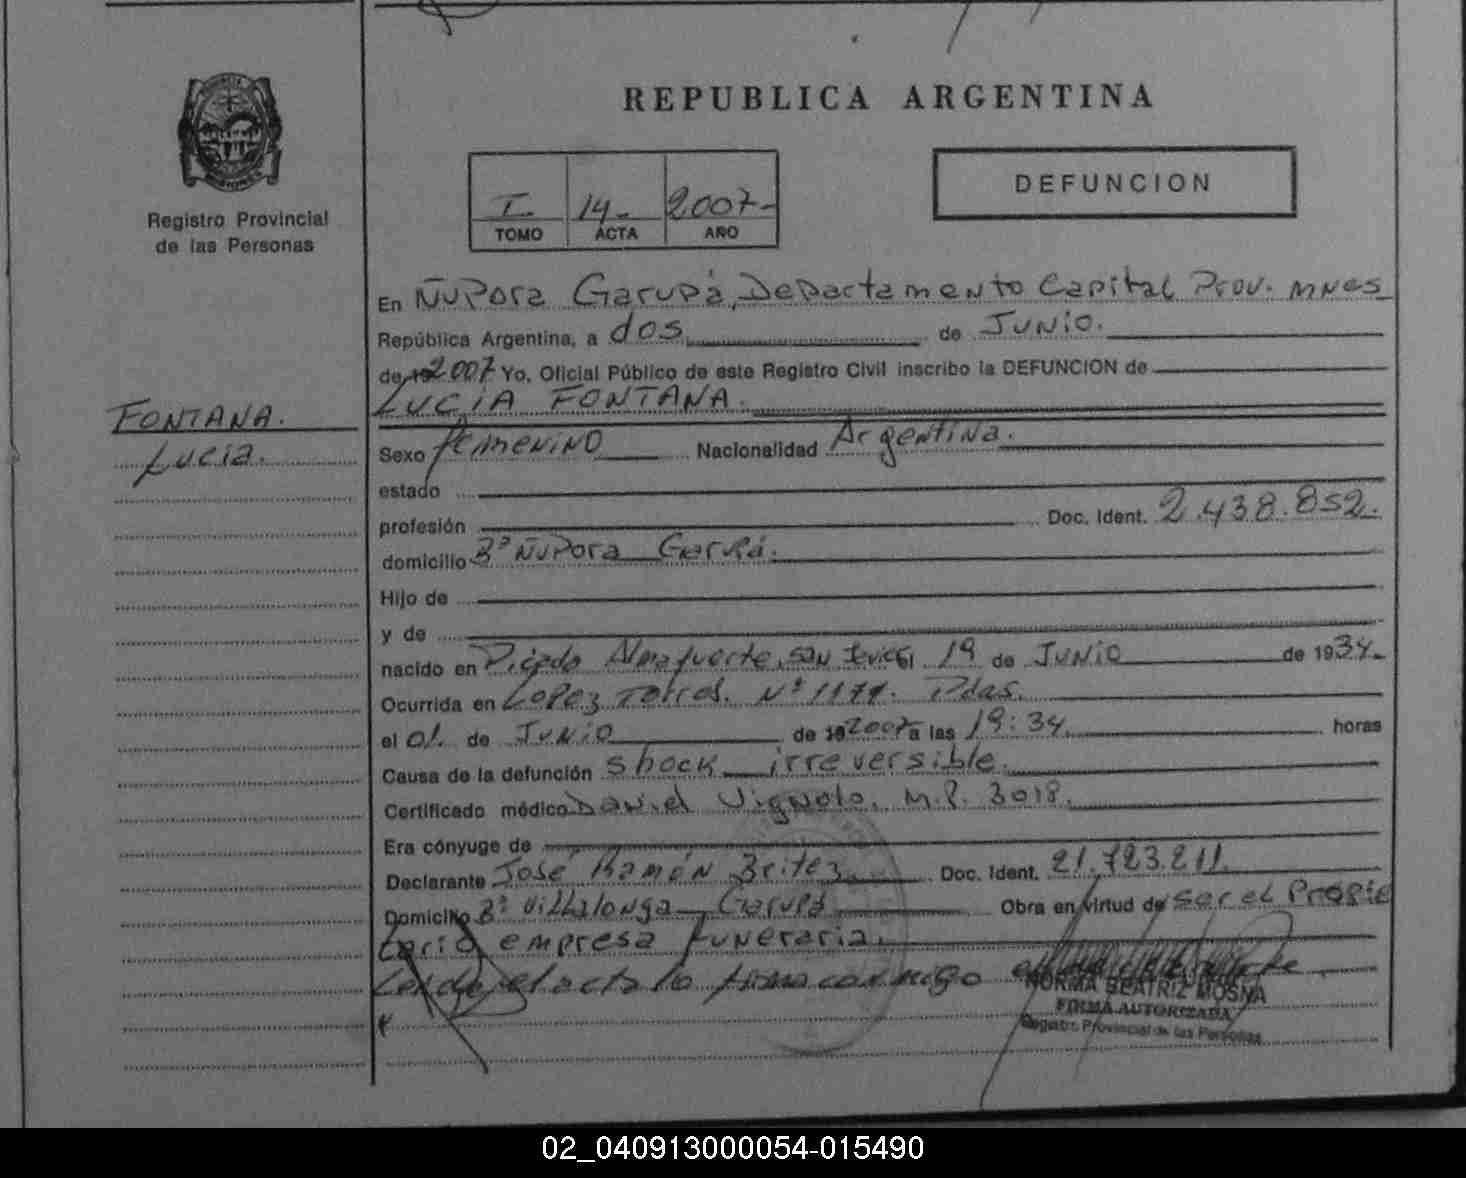 REPUBLICA ARGENTINA
MISIONES
Registro Provincial
de las Personas
I. 14- 2007-
TOMO ACTA AÑO
DEFUNCION
En Ñuporá Garupá, Departamento Capital Prov. MNES
República Argentina, a dos de Junio.
de 19 2007 Yo, Oficial Público de este Registro Civil inscribo la DEFUNCION de
LUCIA FONTANA.
FONTANA.
Lucia.
Sexo femenino Nacionalidad Argentina.
estado
profesión Doc. Ident. 2.438.852.
domicilio Bº Ñuporá Garupá.
Hijo de
y de
nacido en Picada Almafuerte, San Javier el 19 de JUNIO de 1934.
Ocurrida en Lopez Torres. Nº 1177. Pdas.
el 01. de JUNIO de 19 2007 a las 19:34. horas
Causa de la defunción shock irreversible.
Certificado médico Daniel Vignolo. M.P. 3018.
Era cónyuge de
Declarante José Ramón Britez Doc. Ident. 21.723.211.
Domicilio Bº Villalonga Garupá Obra en virtud de ser el Propie
tario empresa funeraria.
Leida el acta la firma conmigo
NORMA BEATRIZ MOSNA
FIRMA AUTORIZADA
Registro Provincial de las Personas
02_040913000054-015490